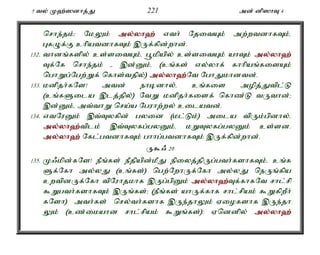 5 வல் முஹ்ஸனாத்து 221 அன் னிஸாவு 4
சொந்தம்; மேலும் அல்லாஹ் எவர் தேவையும் அற்றவனாகவும்,
புகழுக்கு உரியவனாகவும் இருக்கின்றான்.
132. வானங்களில் உள்ளவையும், பூமியில் உள்ளவையும் யாவும் அல்லாஹ்
வுக்கே சொந்தம் - இன்னும், (உங்கள் எல்லாக் காரியங்களையும்
பொறுப்பேற்றுக் கொள்வதில்) அல்லாஹ்வே போதுமானவன்.
133. மனிதர்களே! அவன் நாடினால், உங்களை அழித்துவிட்டு
(உங்களுடைய இடத்தில்) வேறு மனிதர்களைக் கொண்டு வருவான்;
இன்னும், அவ்வாறு செய்ய பேராற்றல் உடையவன்.
134. எவரேனும் இவ்வுலகின் பலனை (மட்டும்) அடைய விரும்பினால்,
அல்லாஹ்விடம் இவ்வுலகப்பலனும், மறுவுலகப்பலனும் உள்ளன.
அல்லாஹ் கேட்பவனாகவும் பார்ப்பவனாகவும் இருக்கின்றான்.
ருகூஃ 20
135. முஃமின்களே! நீங்கள் நீதியின்மீது நிலைத்திருப்பவர்களாகவும், உங்க
ளுக்கோ அல்லது (உங்கள்) பெற்றோருக்கோ அல்லது நெருங்கிய
உறவினருக்கோ விரோதமாக இருப்பினும் அல்லாஹ்வுக்காகவே சாட்சி
கூறுபவர்களாகவும் இருங்கள்; (நீங்கள் யாருக்காக சாட்சியம் கூறுகிறீர்
களோ) அவர்கள் செல்வர்களாக இருந்தாலும் ஏழைகளாக இருந்தா
லும் (உண்மையான சாட்சியம் கூறுங்கள்): ஏனெனில் அல்லாஹ்